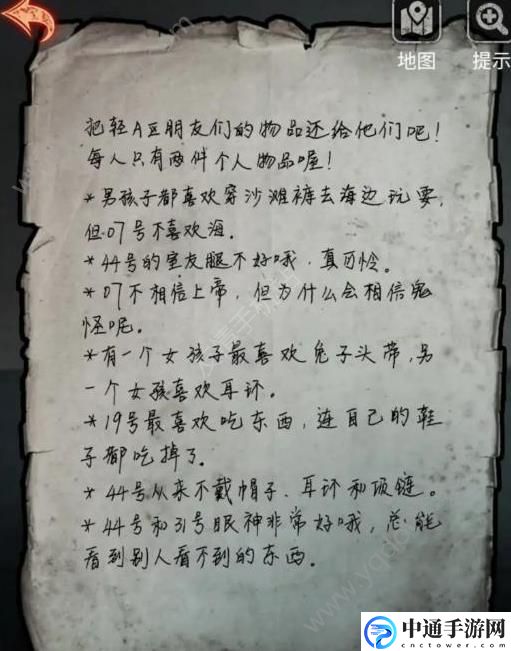 地图
提示
把轻A豆朋友们的物品还给他们吧!
每人只有两件个人物品喔!
*男孩子都喜欢穿沙滩裤去海边玩耍,
但07号不喜欢海.
*44号的室友腿不好哦,真可怜。
*07不相信上帝,但为什么会相信鬼
怪呢。
*有一个女孩子最喜欢兔子头带,另
一个女孩喜欢耳环。
*19号最喜欢吃东西,连自己的鞋
子都吃掉了。
*44号从来不戴帽子、耳环和项链。
*44号和31号眼神非常好哦,总能
看到别人看不到的东西。
中通手游网
cnctoway.com